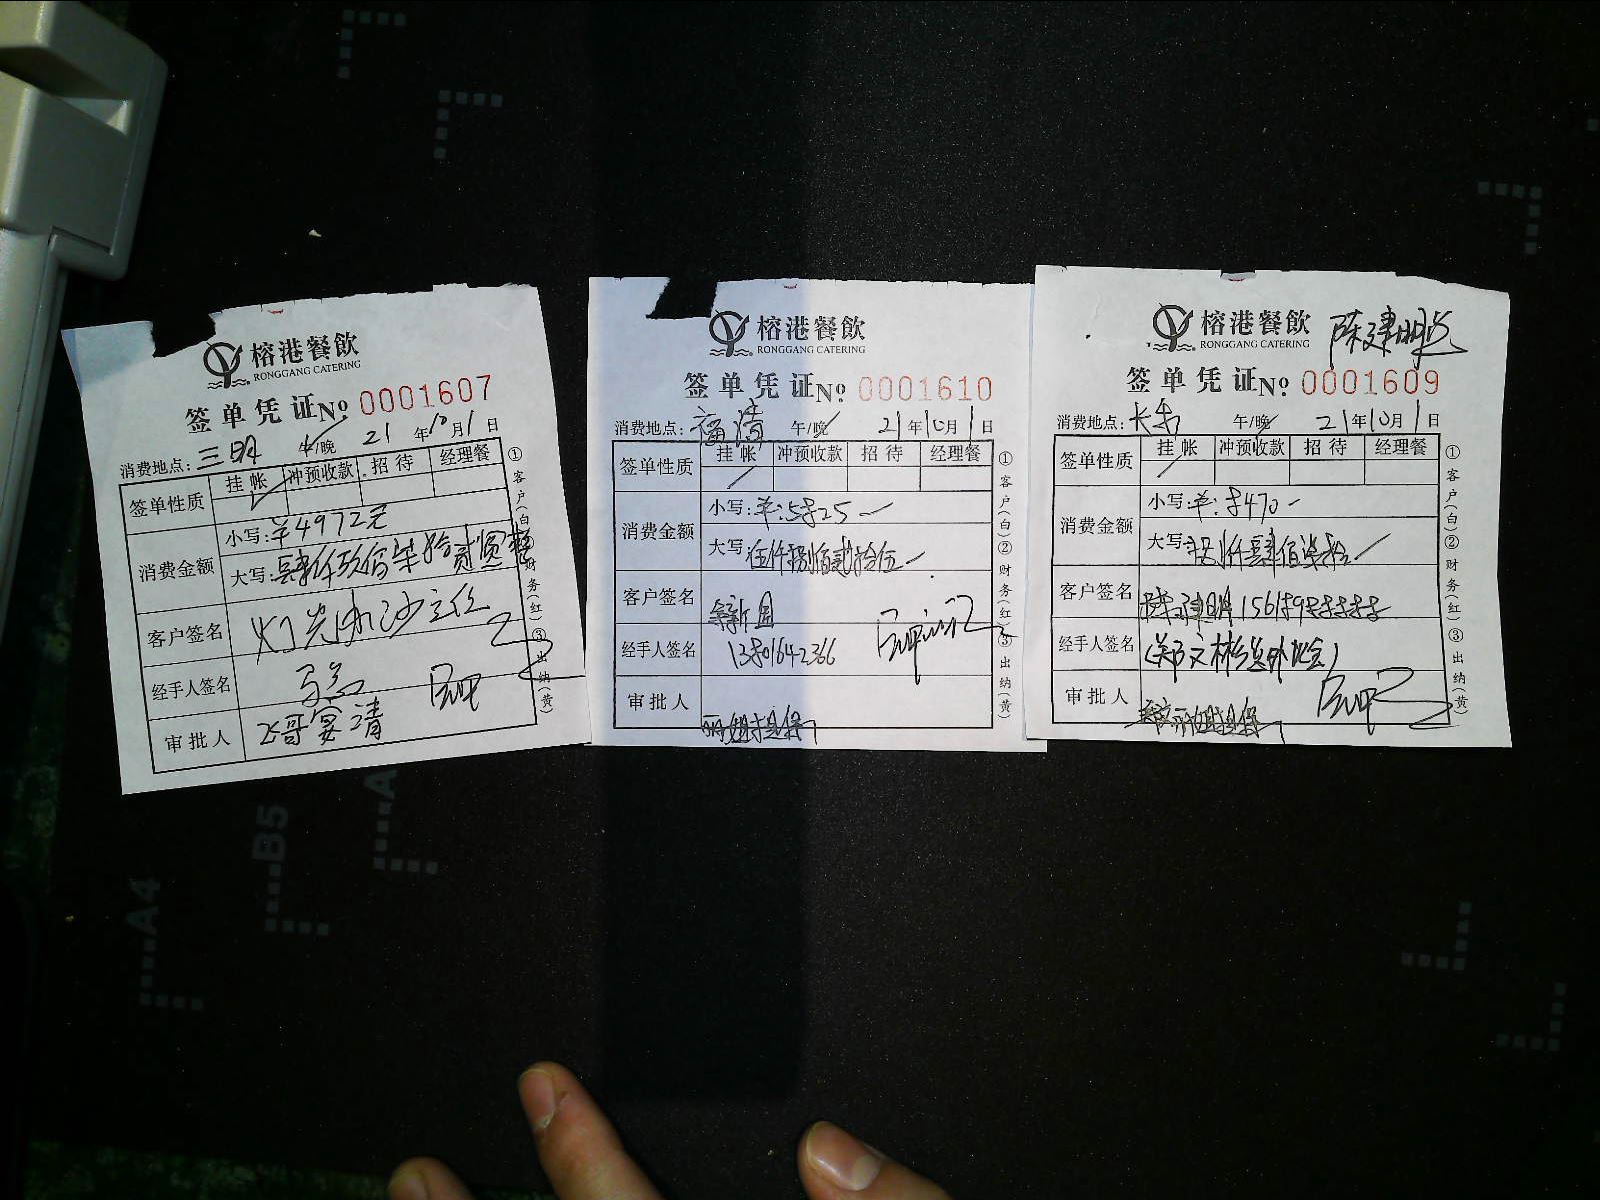 榕港餐飲
RONGGANG CATERING
签单凭证 No. 0001607
消费地点: 三明 午/晚 21年10月1日
签单性质 挂帐 冲预收款 招待 经理餐
消费金额
小写: ¥4972元
大写: 肆仟玖佰柒拾贰圆整
客户签名
经手人签名
审批人 飞哥宴请
①客户(白)②财务(红)③出纳(黄)
榕港餐飲
RONGGANG CATERING
签单凭证 No. 0001610
消费地点: 福清 午/晚 21年10月1日
签单性质 挂帐 冲预收款 招待 经理餐
消费金额
小写: ¥:5825
大写: 伍仟捌佰贰拾伍
客户签名
经手人签名 13801642366
审批人
①客户(白)②财务(红)③出纳(黄)
榕港餐飲
RONGGANG CATERING
签单凭证 No. 0001609
消费地点: 长乐 午/晚 21年10月1日
签单性质 挂帐 冲预收款 招待 经理餐
消费金额
小写: ¥:8470
大写: 捌仟肆佰柒拾
客户签名 陈建明 15689888888
经手人签名
审批人
①客户(白)②财务(红)③出纳(黄)
A4
B5
A